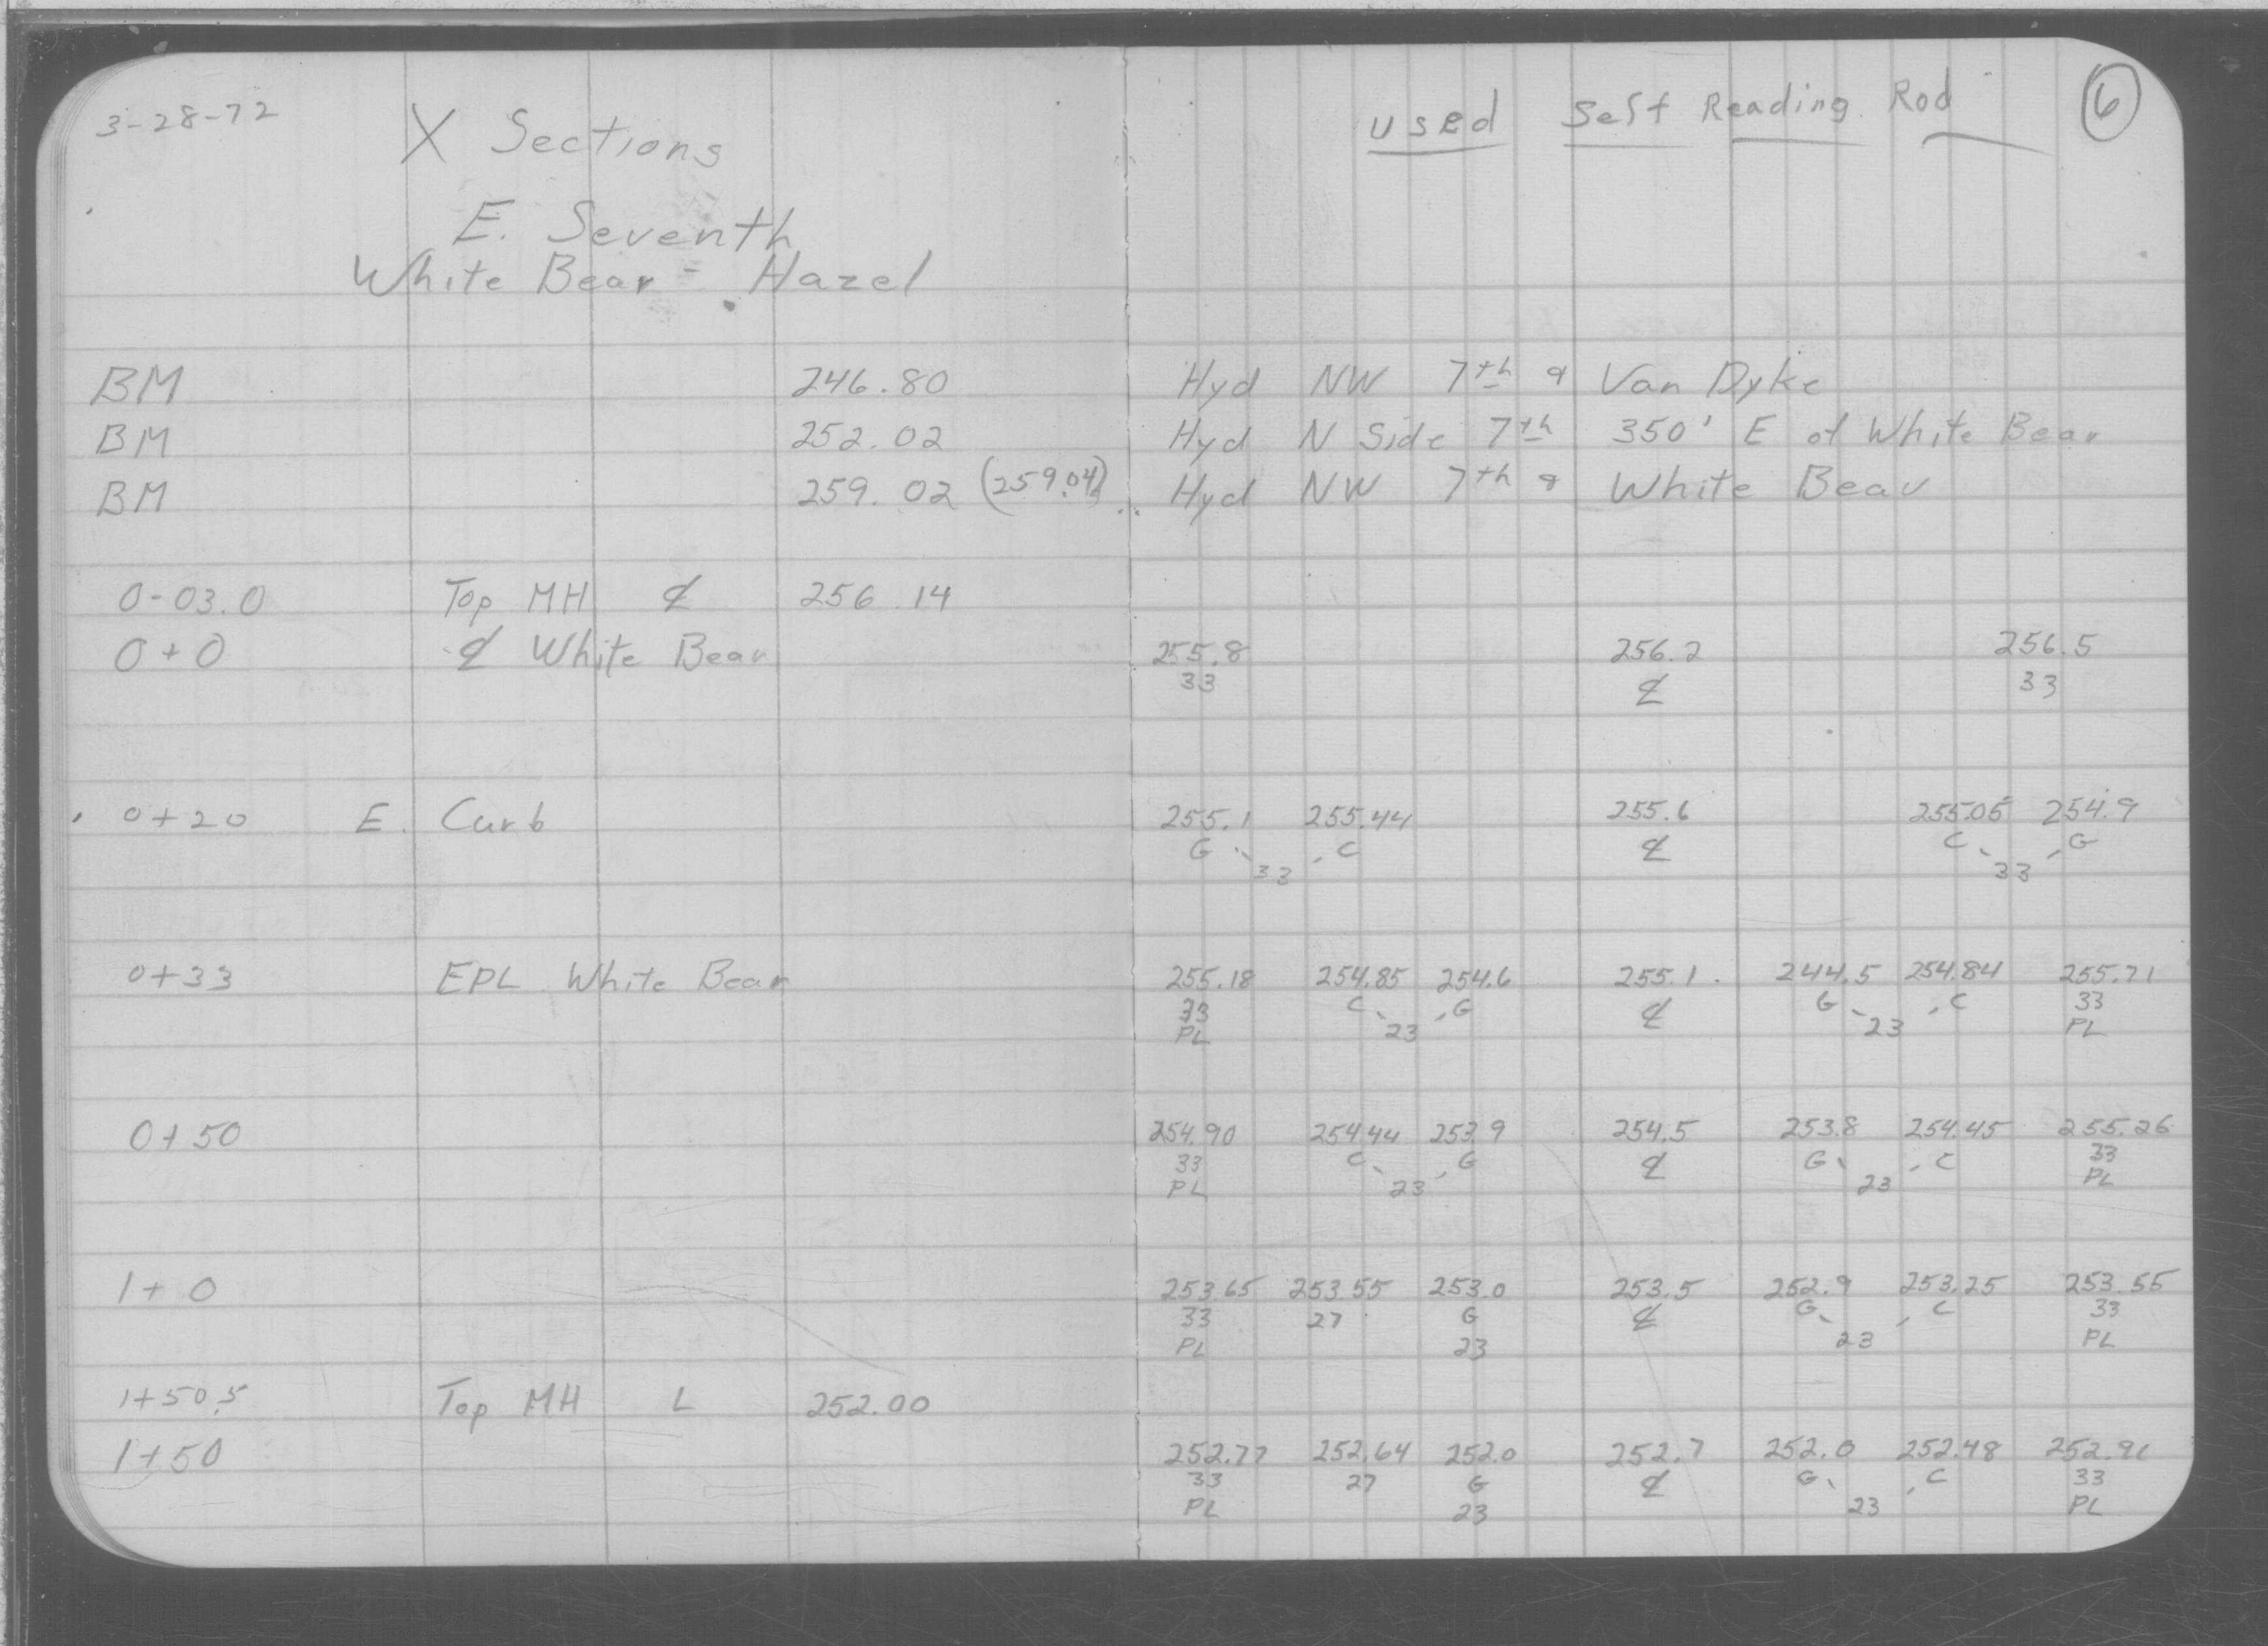 3-28-72
X Sections
E. Seventh
White Bear - Hazel
Used Self Reading Rod
6
BM 246.80 Hyd NW 7th & Van Dyke
BM 252.02 Hyd N Side 7th 350' E of White Bear
BM 259.02 (259.04) Hyd NW 7th & White Bear
0-03.0 Top MH ℄ 256.14
0+0 ℄ White Bear 255.8 256.2 256.5
33 ℄ 33
0+20 E. Curb 255.1 255.44 255.6 255.05 254.9
G C ℄ C G
33 33
0+33 EPL White Bear 255.18 254.85 254.6 255.1 244.5 254.84 255.71
33 C G ℄ G C 33
PL 23 23 PL
0+50 254.90 254.44 253.9 254.5 253.8 254.45 255.26
33 C G ℄ G C 33
PL 23 23 PL
1+0 253.65 253.55 253.0 253.5 252.9 253.25 253.55
33 27 G ℄ G C 33
PL 23 23 PL
1+50.5 Top MH L 252.00
1+50 252.77 252.64 252.0 252.7 252.0 252.48
33 27 G ℄ G C 33
PL 23 23 PL